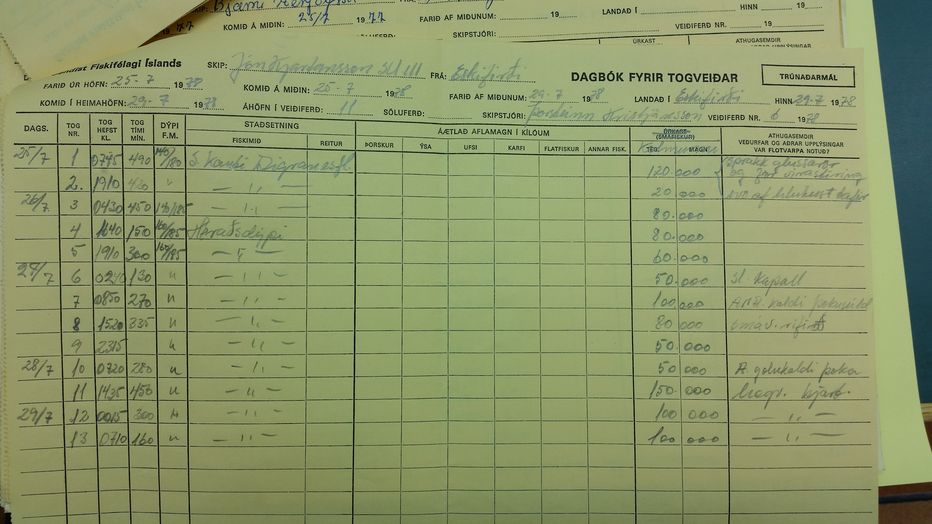 KOMIÐ Á MIÐIN: 25/7 1977
FARIÐ AF MIÐUNUM: 19
LANDAÐ Í
HINN 19
SKIPSTJÓRI:
VEIÐIFERÐ NR.
Fiskifélagi Íslands
SKIP: SU 111 FRÁ: Eskifirði
DAGBÓK FYRIR TOGVEIÐAR
TRÚNAÐARMÁL
FARIÐ ÚR HÖFN: 25-7 1978 KOMIÐ Á MIÐIN: 25-7 1978 FARIÐ AF MIÐUNUM: 29-7 1978 LANDAÐ Í Eskifirði HINN 29-7 1978
KOMIÐ Í HEIMAHÖFN: 29-7 1978 ÁHÖFN Í VEIÐIFERÐ: 11 SÖLUFERÐ: SKIPSTJÓRI: Þorsteinn Kristjánsson VEIÐIFERÐ NR. 6 1978
DAGS. TOG NR. TOG HEFST KL. TOG TÍMI MÍN. DÝPI F.M. STAÐSETNING FISKIMIÐ REITUR ÁÆTLAÐ AFLAMAGN Í KÍLÓUM ÞORSKUR ÝSA UFSI KARFI FLATFISKUR ANNAR FISK. ÚRKAST (SMÁFISKUR) TEG. MAGN ATHUGASEMDIR VEÐURFAR OG AÐRAR UPPLÝSINGAR VAR FLOTVARPA NOTUÐ?
Kolmunni
25/7 1 0745 490 140/180 120.000
2. 1910 420 " — " — 20.000
26/7 3 0430 450 140/185 — " — 80.000
4 1640 150 160/185 Héraðsdýpi 80.000
5 1910 300 160/185 — " — 60.000
27/7 6 0240 130 " — " — 50.000
7 0850 270 " — " — 100.000
8 1520 335 " — " — 80 000
9 2315 " — " — 50.000
28/7 10 0720 280 " — " — 50 000
11 1435 450 " — " — 150.000
29/7 12 0015 300 " — " — 100 000 — " —
13 0710 160 " — " — 100 000 — " —